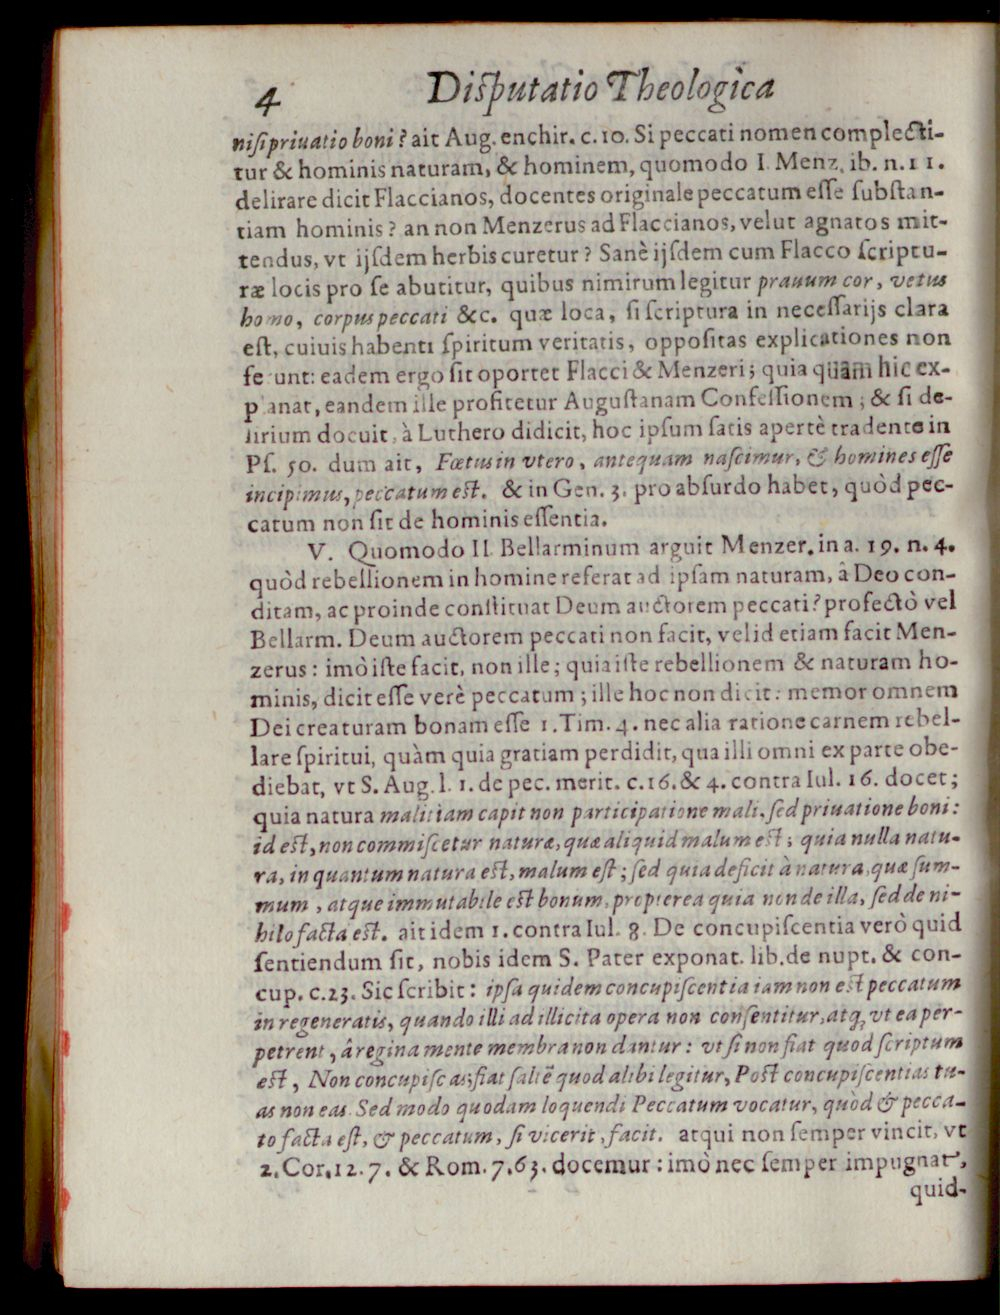 4 Disputatio Theologica
nisi priuatio boni? ait Aug. enchir. c. 10. Si peccati nomen complecti-
tur & hominis naturam, & hominem, quomodo I. Menz. ib. n. 11.
delirare dicit Flaccianos, docentes originale peccatum esse substan-
tiam hominis? an non Menzerus ad Flaccianos, velut agnatos mit-
tendus, vt ijsdem herbis curetur? Sanè ijsdem cum Flacco scriptu-
ræ locis pro se abutitur, quibus nimirum legitur prauum cor, vetus
homo, corpus peccati &c. quæ loca, si scriptura in necessarijs clara
est, cuiuis habenti spiritum veritatis, oppositas explicationes non
ferunt: eadem ergo sit oportet Flacci & Menzeri; quia quam hic ex-
planat, eandem ille profitetur Augustanam Confessionem; & si de-
lirium docuit, à Luthero didicit, hoc ipsum satis apertè tradente in
Ps. 50. dum ait, Fœtus in vtero, antequam nascimur, & homines esse
incipimus, peccatum est. & in Gen. 3. pro absurdo habet, quòd pec-
catum non sit de hominis essentia.
V. Quomodo II. Bellarminum arguit Menzer. in a. 19. n. 4.
quòd rebellionem in homine referat ad ipsam naturam, â Deo con-
ditam, ac proinde constituat Deum auctorem peccati? profectò vel
Bellarm. Deum auctorem peccati non facit, vel id etiam facit Men-
zerus: imò iste facit, non ille; quia iste rebellionem & naturam ho-
minis, dicit esse verè peccatum; ille hoc non dicit: memor omnem
Dei creaturam bonam esse 1. Tim. 4. nec alia ratione carnem rebel-
lare spiritui, quàm quia gratiam perdidit, qua illi omni ex parte obe-
diebat, vt S. Aug. l. 1. de pec. merit. c. 16. & 4. contra Iul. 16. docet;
quia natura malitiam capit non participatione mali, sed priuatione boni:
id est, non commiscetur naturæ, quæ aliquid malum est; quia nulla natu-
ra, in quantum natura est, malum est; sed quia deficit à natura, quæ sum-
mum, atque immutabile est bonum, propterea quia non de illa, sed de ni-
hilo facta est. ait idem 1. contra Iul. 8. De concupiscentia verò quid
sentiendum sit, nobis idem S. Pater exponat. lib. de nupt. & con-
cup. c. 23. Sic scribit: ipsa quidem concupiscentia iam non est peccatum
in regeneratis, quando illi ad illicita opera non consentitur, atq; vt ea per-
petrent, â regina mente membra non dantur: vt si non fiat quod scriptum
est, Non concupiscas; fiat saltẽ quod alibi legitur, Post concupiscentias tu-
as non eas. Sed modo quodam loquendi Peccatum vocatur, quòd & pecca-
to facta est, & peccatum, si vicerit, facit. atqui non semper vincit, vt
2. Cor. 12. 7. & Rom. 7. 63. docemur: imò nec semper impugnat,
quid-